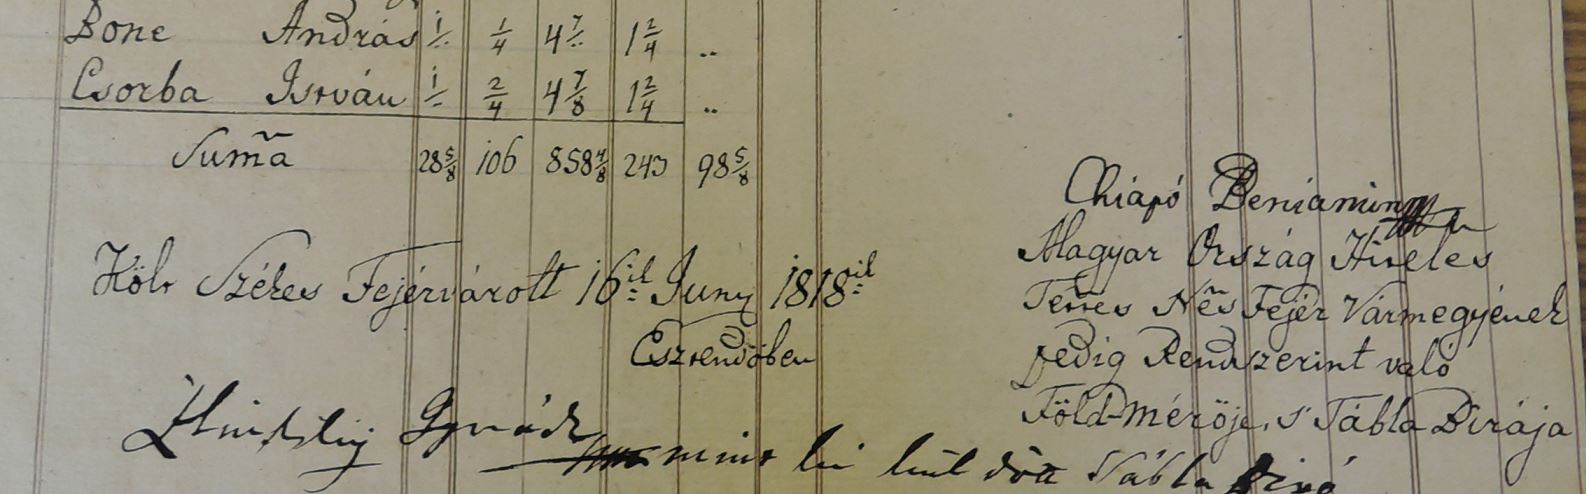 Bone András 1/.. 1/4 4 7/.. 1 2/4 ..
Csorba István 1/.. 2/4 4 7/8 1 2/4 ..
Sum̃a 28 5/8 106 858 4/8 243 98 5/8
Költ Székes Fejérvárott 16ik Juny 1818ik
Esztendőben
Chiapó Beniamin
Magyar Ország Hiteles
Tettes Nẽs Fejér Vármegyének
pedig Rendszerint való
Föld-mérője, s' Tábla Birája
Ignácz mint ki küldött Tábla Biró